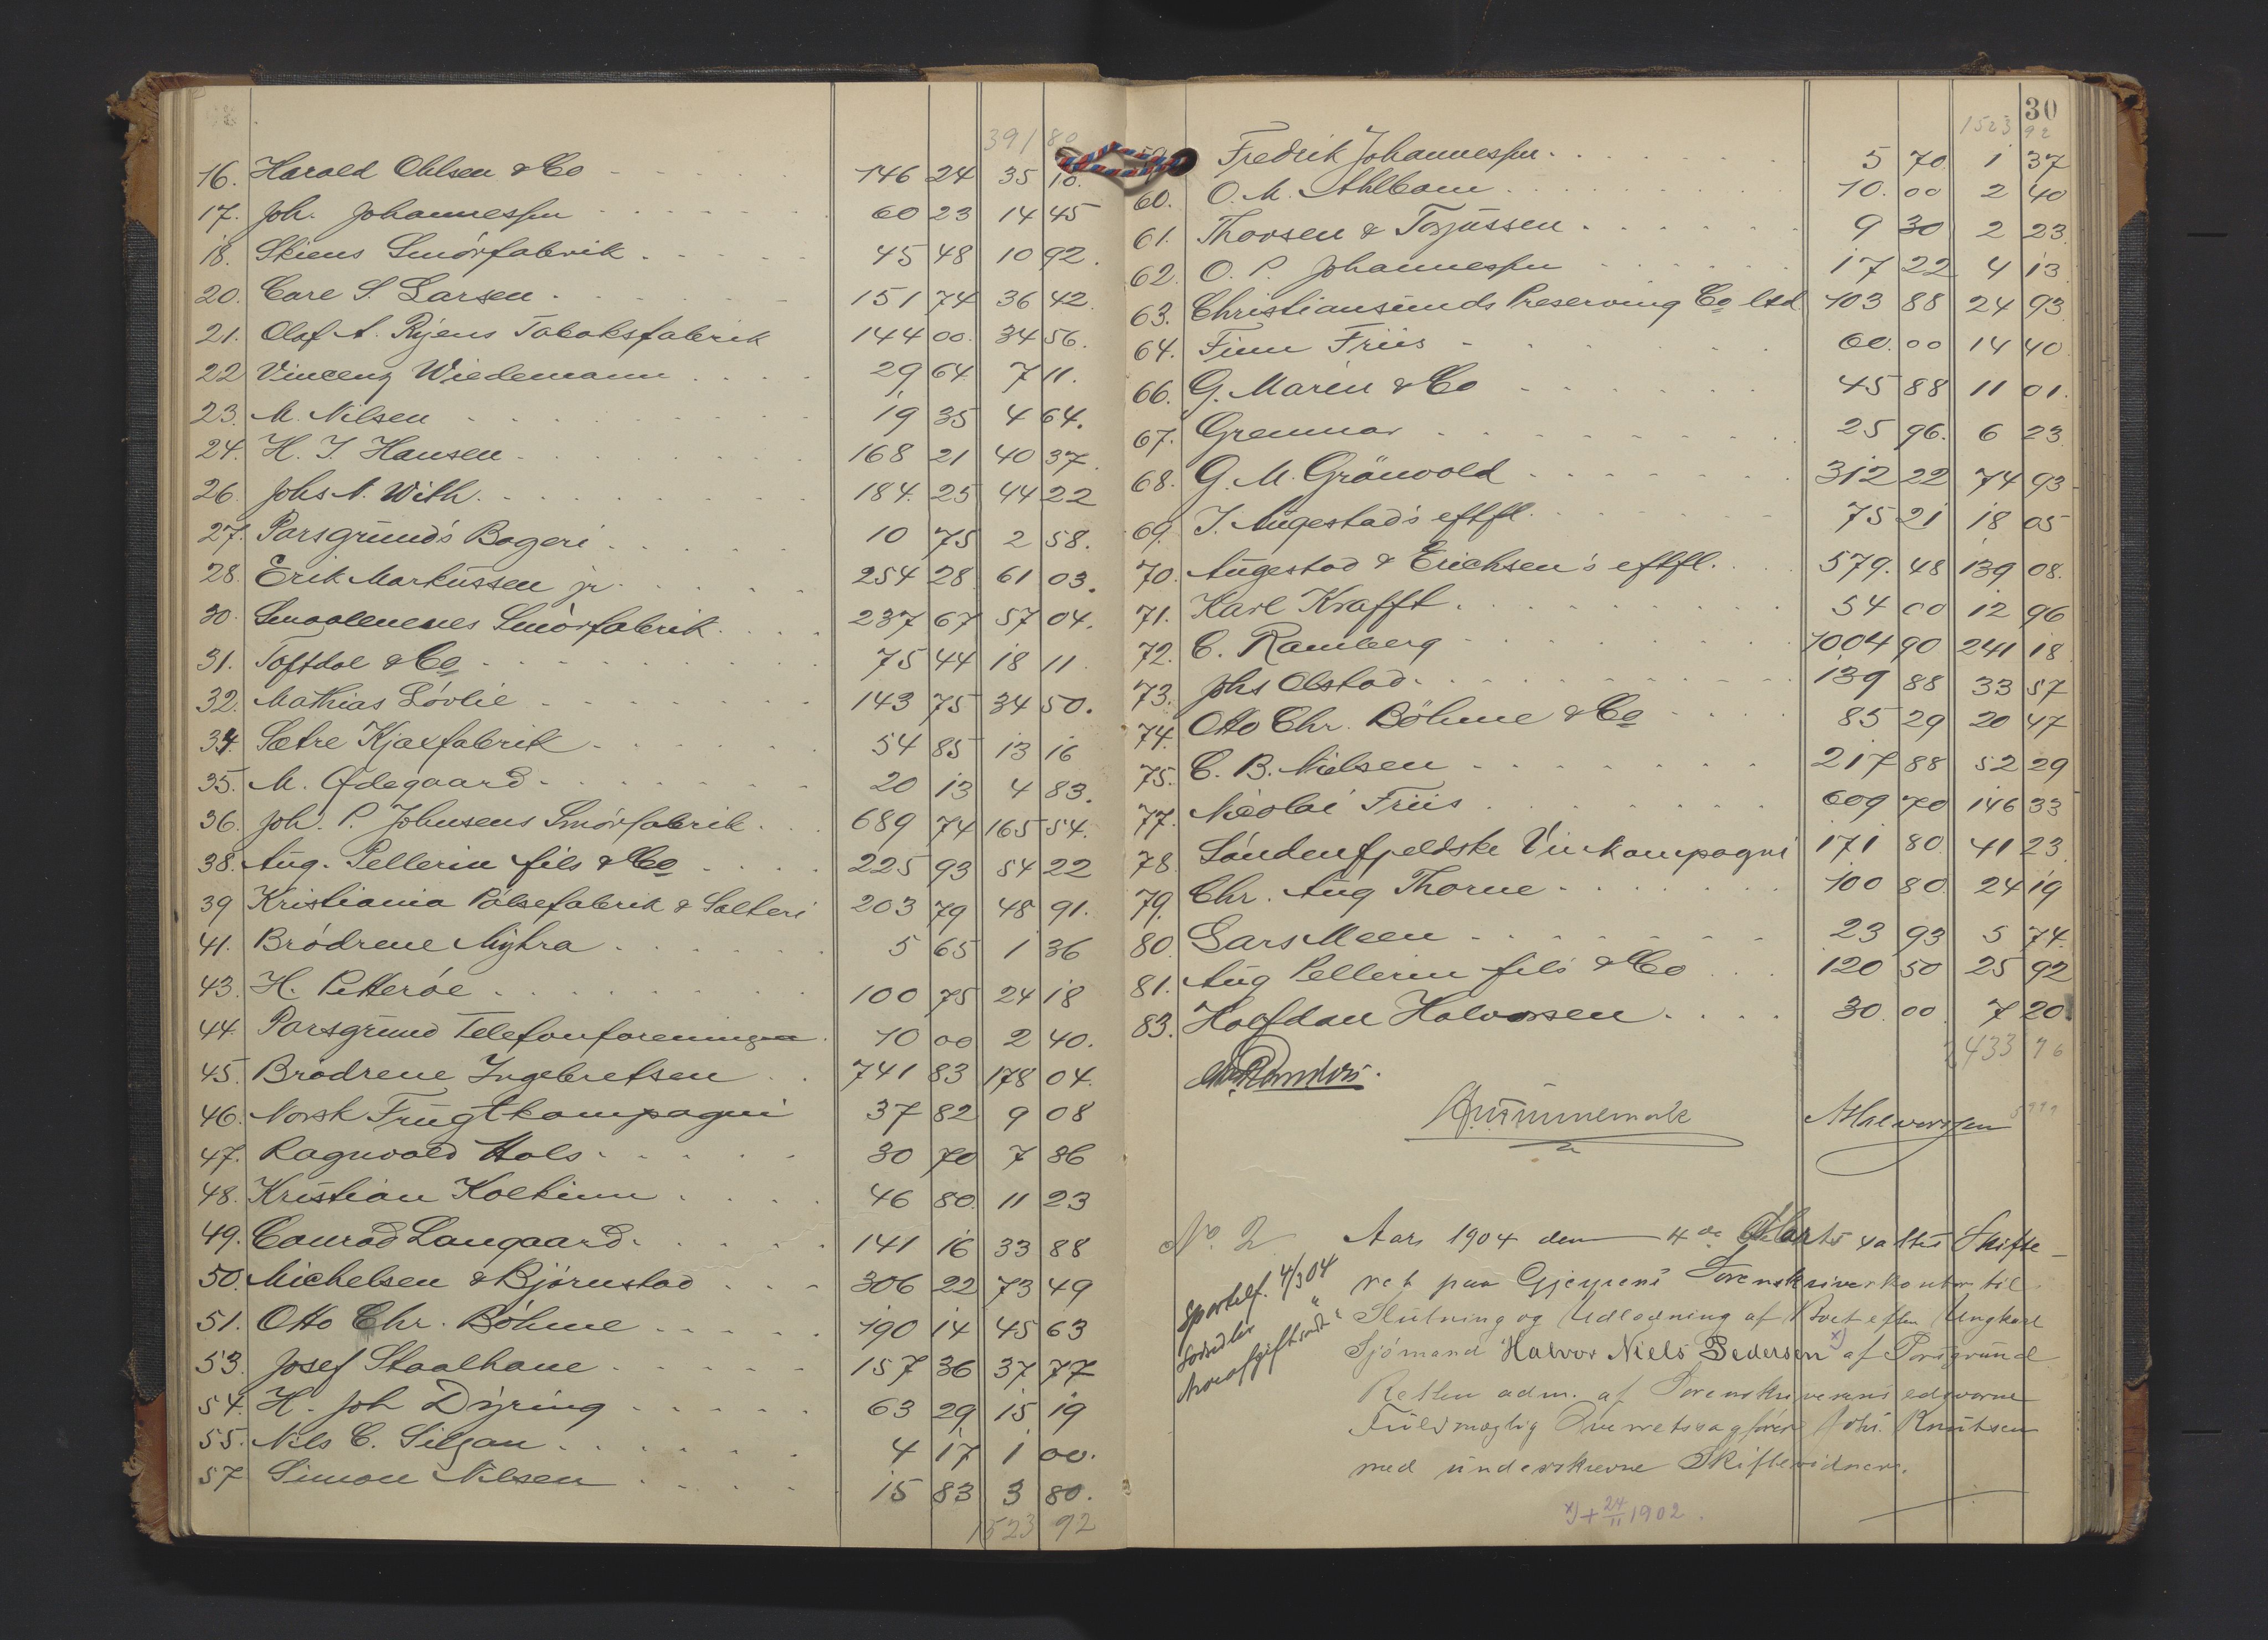 391 80
16. Harald Ohlsen & Co 146 24 35 10.
17. Joh. Johannessen 60 23 14 45
18. Skiens Smørfabrik 45 48 10 92.
20. Carl S. Larsen 151 74 36 42
21. Olaf A. Ryens Tobaksfabrik 144 00. 34 56.
22 Vincenz Wiedemann 29 64 7 11.
23. M. Nilsen 19 35 4 64.
24. H. J. Hansen 168 21 40 37.
26. Johs N. With 184. 25 44 22
27. Porsgrund's Bageri 10 75 2 58.
28. Erik Markussen jr 254 28 61 03.
30. Smaalenenes Smørfabrik 237 67 57 04.
31. Toftdal & Co 75 44 18 11.
32. Mathias Løvlie 143 75 34 50.
34. Sætre Kjæxfabrik 54 85 13 16
35. M. Ødegaard 20 13 4 83.
36. Joh. P. Johnsens Smørfabrik 689 74 165 54.
38. Aug. Pellerin fils & Co 225 93 54 22
39 Kristiania Pølsefabrik & Salteri 203 79 48 91.
41. Brødrene Myhra 5 65 1 36
43. H. Petterøe 100 75 24 18
44. Porsgrund Telefonforening 10 00 2 40.
45. Brødrene Ingebretsen 741 83 178 04.
46. Norsk Frugtkompagni 37 82 9 08
47. Ragnvald Hals 30 70 7 36
48. Kristian Kolkinn 46 80. 11 23
49. Conrad Langaard 141 16 33 88
50. Michelsen & Bjørnstad 306 22 73 49
51. Otto Chr. Bøhme 190 14 45 63
53. Josef Staalhane 157 36 37 77
54. H. Joh Dyring 63 29 15 19
55. Nils C. Siljan 4 17 1 00.
57 Simon Nilsen 15 83 3 80.
1523 92
30
1523 92
59. Fredrik Johannessen 5 70 1 37
60. O. M. Ahlbom 10. 00 2 40
61. Thorsen & Torjussen 9 30 2 23
62. O. P. Johannessen 17 22 4 13
63. Christiansunds Preserving Co Ltd 103 88 24 93
64. Finn Friis 60. 00 14 40
66. G. Marin & Co 45 88 11 01.
67. Grenmar 25 96. 6 23
68. G. M. Grönvold 312 22 74 93
69. J. Augestad's eftfl. 75 21 18 05
70. Augestad & Erichsen's eftfl. 579. 48 139 08.
71. Karl Krafft 54 00 12 96
72. C. Ramberg 1004 90 241 18
73. Johs Olstad 139 88 33 57
74. Otto Chr. Böhme & Co 85 29 20 47
75. C. B. Nielsen 217 88 52 29
77. Nicolai Friis 609 70 146 33
78. Søndenfjeldske Vinkompagni 171 80 41 23
79. Chr. Aug Thorne 100 80 24 19
80. Lars Meen 23 93 5 74.
81. Aug Pellerin fils & Co 120 50 25 92
83. Halfdan Halvorsen 30. 00 7 20
2433 96
A Halvorsen
No. 2 Aar 1904 den 4de Marts holdtes Skifte-
ret paa Gjerpens Sorenskriverkontor til
Slutning og Udlodning af Boet efter Ungkarl
Sjømand Halvor Niels Pedersen x) af Porsgrund
Retten adm. af Sorenskriverens edsvorne
Fuldmægtig Overretssagfører Johs. Knutsen
med underskrevne Skiftevidner.
Sportelf. 4/3 04
x) + 24/11 1902.